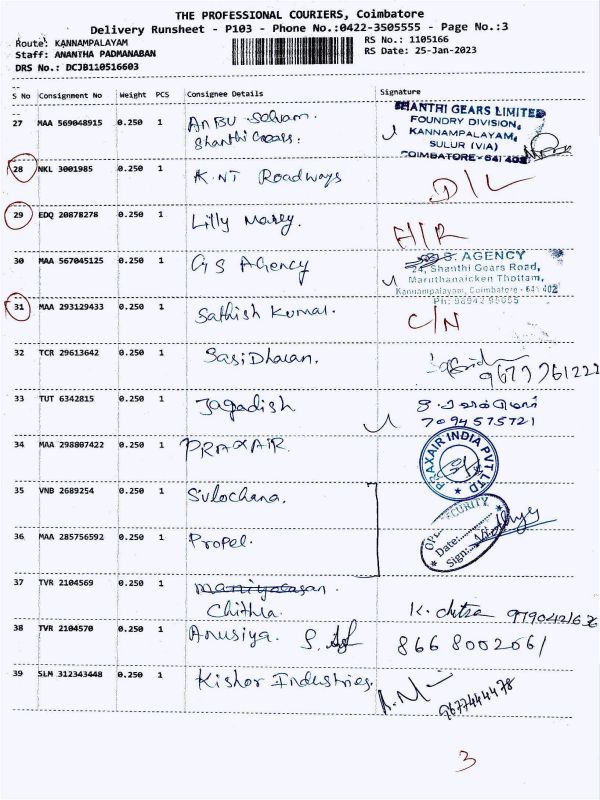 THE PROFESSIONAL COURIERS, Coimbatore
Delivery Runsheet - P103 - Phone No.:0422-3505555 - Page No.:3
Route: KANNAMPALAYAM
RS No.: 1105166
Staff: ANANTHA PADMANABAN
RS Date: 25-Jan-2023
DRS No.: DCJB110516603
S No Consignment No Weight PCS Consignee Details Signature
27 MAA 569048915 0.250 1 Anbu Selvam.
Shanthi Gears.
SHANTHI GEARS LIMITED
FOUNDRY DIVISION,
KANNAMPALAYAM,
SULUR (VIA)
COIMBATORE-641 402
28 NKL 3001985 0.250 1 K.NT Roadways D/L
29 EDQ 20878278 0.250 1 Lilly Marey. H/R
30 MAA 567045125 0.250 1 GS Agency
S. AGENCY
24, Shanthi Gears Road,
Maruthanaicken Thottam,
Kannampalayam, Coimbatore - 641 402
31 MAA 293129433 0.250 1 Sathish Kumar. C/N
32 TCR 29613642 0.250 1 SasiDharan.
33 TUT 6342815 0.250 1 Jagadish
7094575721
34 MAA 298807422 0.250 1 PRAXAIR.
PRAXAIR INDIA PVT LTD
35 VNB 2689254 0.250 1 Sulochana.
SECURITY
Date:
Sign:
36 MAA 285756592 0.250 1 Propel.
37 TVR 2104569 0.250 1
Chithra. K. chitra
38 TVR 2104570 0.250 1 Anusiya. 8668002061
39 SLM 312343448 0.250 1 Kishor Industries. 9677444478
3